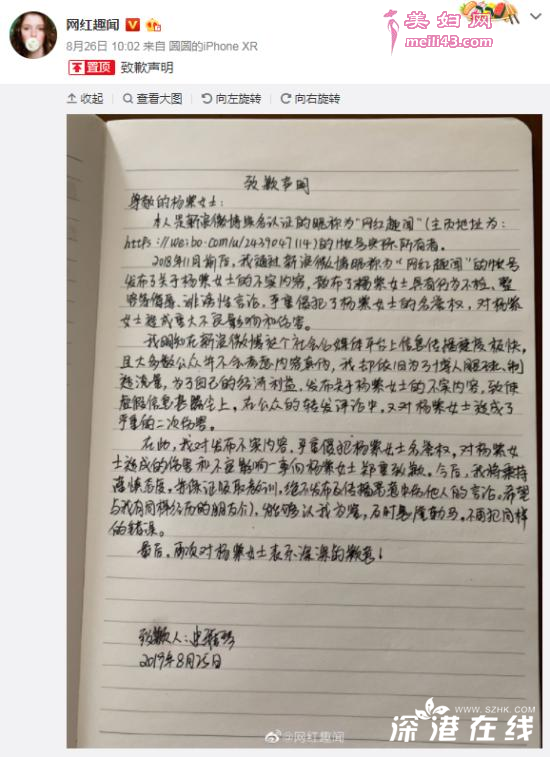 网红趣闻
美妇网
meili43.com
8月26日 10:02 来自 圆圆的iPhone XR
置顶 致歉声明
收起 查看大图 向左旋转 向右旋转
致歉声明
尊敬的杨幂女士:
本人是新浪微博实名认证的昵称为“网红趣闻”(主页地址为:
https://weibo.com/u/2439047114)的账号实际所有者。
2018年11月前后,我通过新浪微博昵称为“网红趣闻”的账号
发布了关于杨幂女士的不实内容,散布了杨幂女士具有行为不检、整
等侮辱、诽谤性言论,严重侵犯了杨幂女士的名誉权,对杨幂
女士造成重大不良影响和伤害。
我明知在新浪微博这个社会公众媒体平台上信息传播速度极快,
且大多数公众并不会考虑内容真伪,我却依旧为了博人眼球、制
造流量,为了自己的经济利益,发布关于杨幂女士的不实内容,致使
虚假信息甚嚣尘上,在公众的转发评论中,又对杨幂女士造成了
严重的二次伤害。
在此,我对发布不实内容,严重侵犯杨幂女士名誉权,对杨幂女
士造成的伤害和不良影响一事向杨幂女士郑重致歉。今后,我将秉持
谨慎态度,并保证吸取教训,绝不发布及传播恶意中伤他人的言论。希望
与我有同样经历的朋友们,能够以我为戒,及时悬崖勒马,不再犯同样
的错误。
最后,再次对杨幂女士表示深深的歉意!
致歉人:史
2019年8月25日
@网红趣闻
www.szhk.com
深港在线